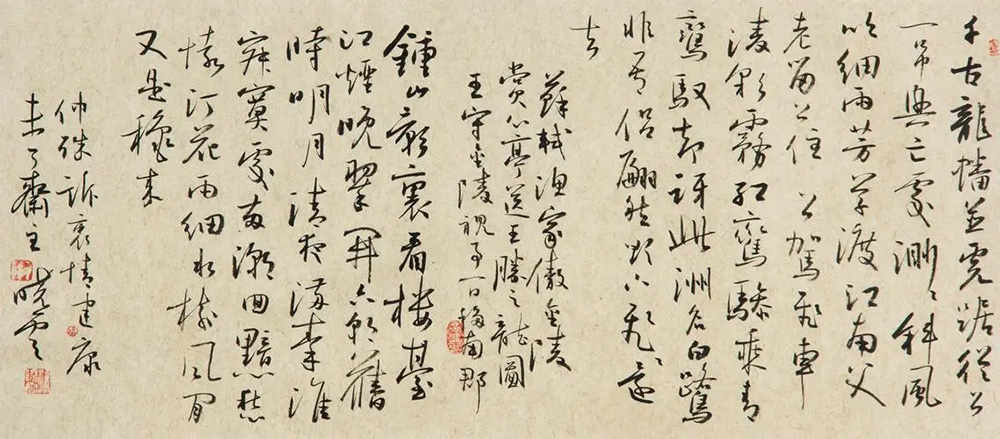 千古龍蟠並虎踞從公
一弔興亡處渺渺斜風
吹細雨芳草渡江南父
老留公住 公駕飛車
淩彩霧紅鸞驂乘青
鸞馭却訝此洲名白鷺
非吾侶翩然欲下飛還
去
蘇軾漁家傲金陵
賞心亭送王勝之龍圖
王守金陵視事一日移南郡
鍾山影裏看樓臺
江煙晚翠開六朝舊
時明月清夜滿秦淮
寂寞處兩潮回黯愁
懷汀花雨細水樹風閒
又是秋来
仲殊訴衷情建康
未了齋主